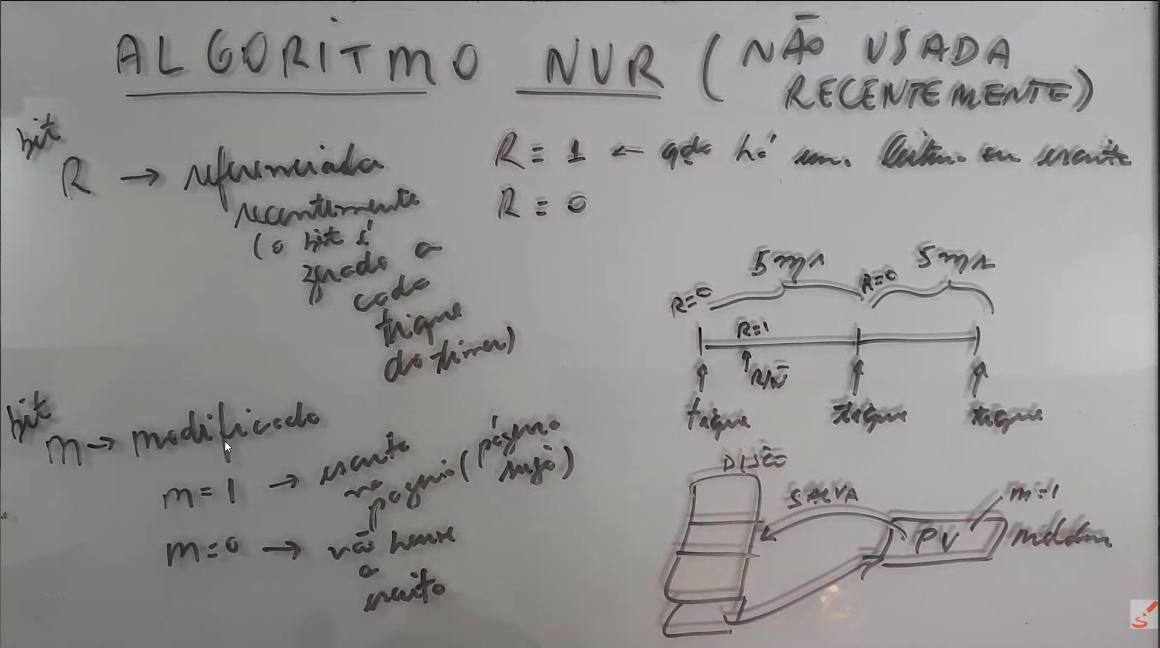 ALGORITMO NUR (NÃO USADA
RECENTEMENTE)
bit
R → referenciada
recentemente
(o bit é
zerado a
cada
tique
do timer)
R = 1 ← qdo há um. leitura ou escrita
R = 0
5 ms
5 ms
R=0
R=0
R=1
R/W
tique
tique
tique
bit
M → modificada
m = 1 → escrita
na
página (página
suja)
m = 0 → não houve
a
escrita
DISCO
SALVA
m=1
PV